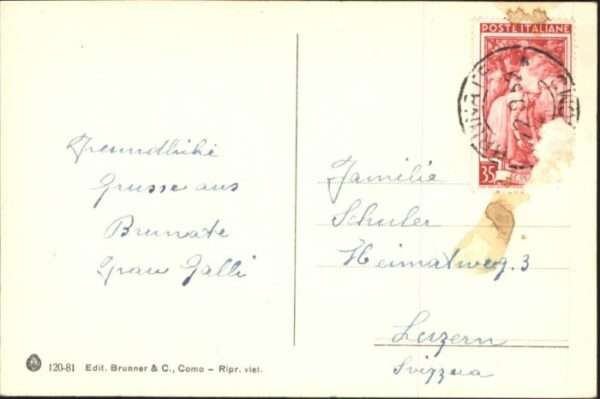 Freundliche
Grüsse aus
Brunate
Frau Galli
POSTE ITALIANE
35
Familie
Schuler
Heimatweg. 3
Luzern
Svizzera
120-81 Edit. Brunner & C., Como – Ripr. viet.